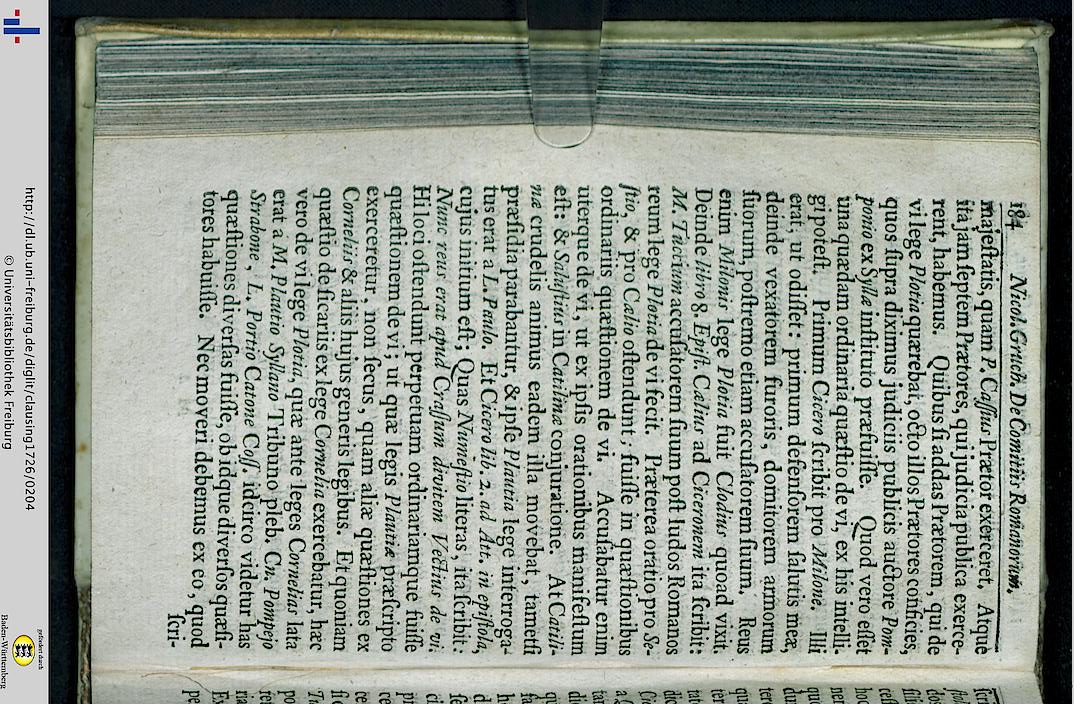 184 Nicol. Gruch. De Comitiis Romanorum,
majeſtatis, quam P. Caſſius Prætor exerceret. Atque
ita jam ſeptem Prætores, qui judicia publica exerce-
rent, habemus. Quibus ſi addas Prætorem, qui de
vi lege Plotia quærebat, octo illos Prætores conficies,
quos ſupra diximus judiciis publicis auctore Pom-
ponio ex Sylla inſtituto præfuiſſe. Quod vero eſſet
una quædam ordinaria quæſtio de vi, ex his intelli-
gi poteſt. Primum Cicero ſcribit pro Milone. Illi
erat, ut odiſſet; primum defenſorem ſalutis meæ,
deinde vexatorem furoris, domitorem armorum
ſuorum, poſtremo etiam accuſatorem ſuum. Reus
enim Milonis lege Plotia fuit Clodius quoad vixit.
Deinde libro 8. Epiſt. Cælius ad Ciceronem ita ſcribit:
M. Tucium accuſatorem ſuum poſt ludos Romanos
reum lege Plotia de vi fecit. Præterea oratio pro Se-
ſtio, & pro Cælio oſtendunt; fuiſſe in quæſtionibus
ordinariis quæſtionem de vi. Accuſabatur enim
uterque de vi, ut ex ipſis orationibus manifeſtum
eſt: & Saluſtius in Catilinæ conjuratione. At Catili-
næ crudelis animus eadem illa movebat, tametſi
præſidia parabantur, & ipſe Plautia lege interroga-
tus erat a L. Paulo. Et Cicero lib. 2. ad Att. in epiſtola,
cujus initium eſt; Quas Numeſtio literas, ita ſcrib.:
Nunc reus erat apud Craſſum divitem Vettius de vi.
Hi loci oſtendunt perpetuam ordinariamque fuiſſe
quæſtionem de vi; ut quæ legis Plautiæ præſcripto
exerceretur, non ſecus, quam aliæ quæſtiones ex
Corneliis & aliis hujus generis legibus. Et quoniam
quæſtio de ſicariis ex lege Cornelia exercebatur, hæc
vero de vi lege Plotia, quæ ante leges Cornelias lata
erat a M. Plautio Syllano Tribuno pleb. Cn. Pompejo
Strabone, L. Portio Catone Coſſ. idcirco videtur has
quæſtiones diverſas fuiſſe, ob idque diverſos quæſi-
tores habuiſſe. Nec moveri debemus ex eo, quod
ſcri-
http://dl.ub.uni-freiburg.de/diglit/clausing1726/0204
© Universitätsbibliothek Freiburg
gefördert durch
Baden-Württemberg